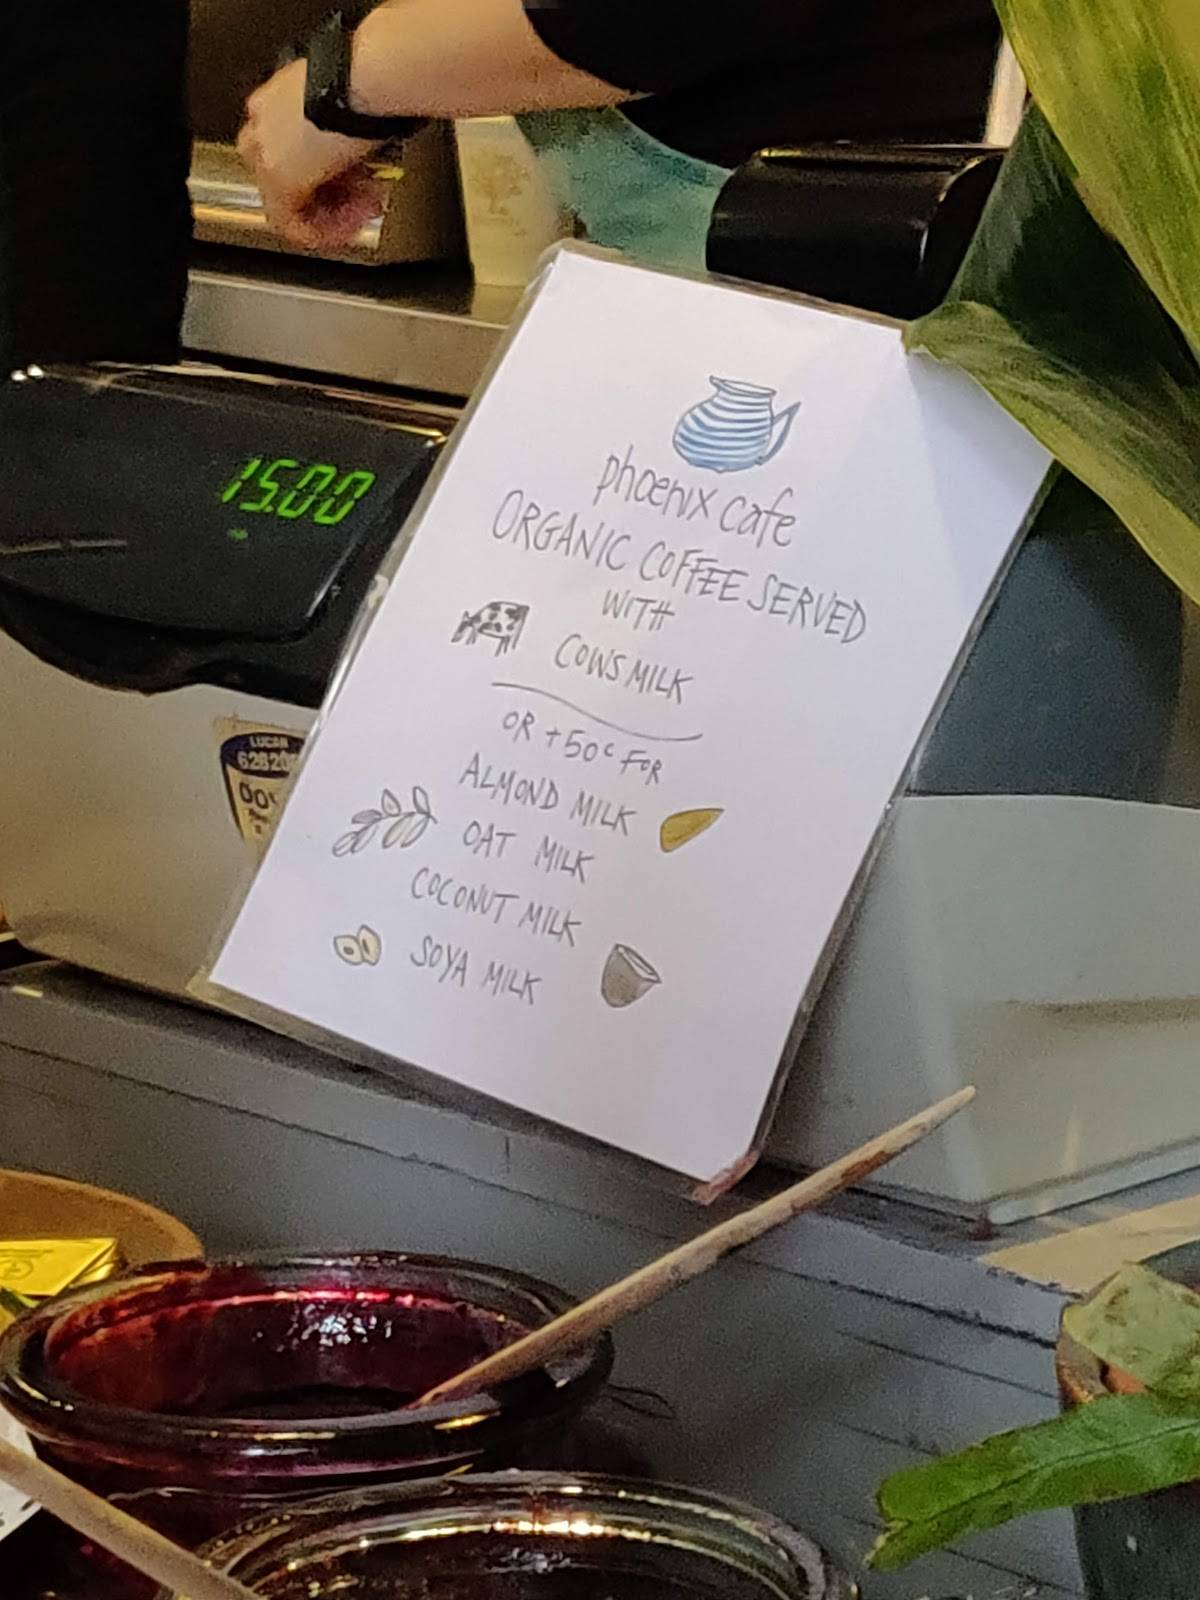 15.00
phoenix cafe
ORGANIC COFFEE SERVED
WITH
COWS MILK
OR +50c FOR
ALMOND MILK
OAT MILK
COCONUT MILK
SOYA MILK